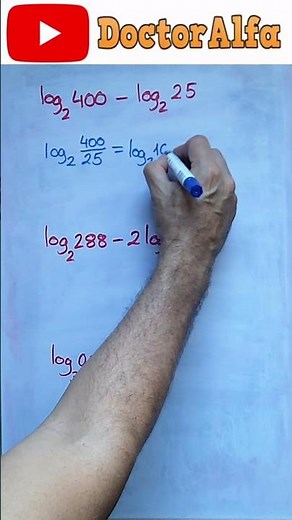 DoctorAlfa
log₂400 − log₂25
log₂ 400/25 = log₂16
log₂288 − 2 lo
log₂0